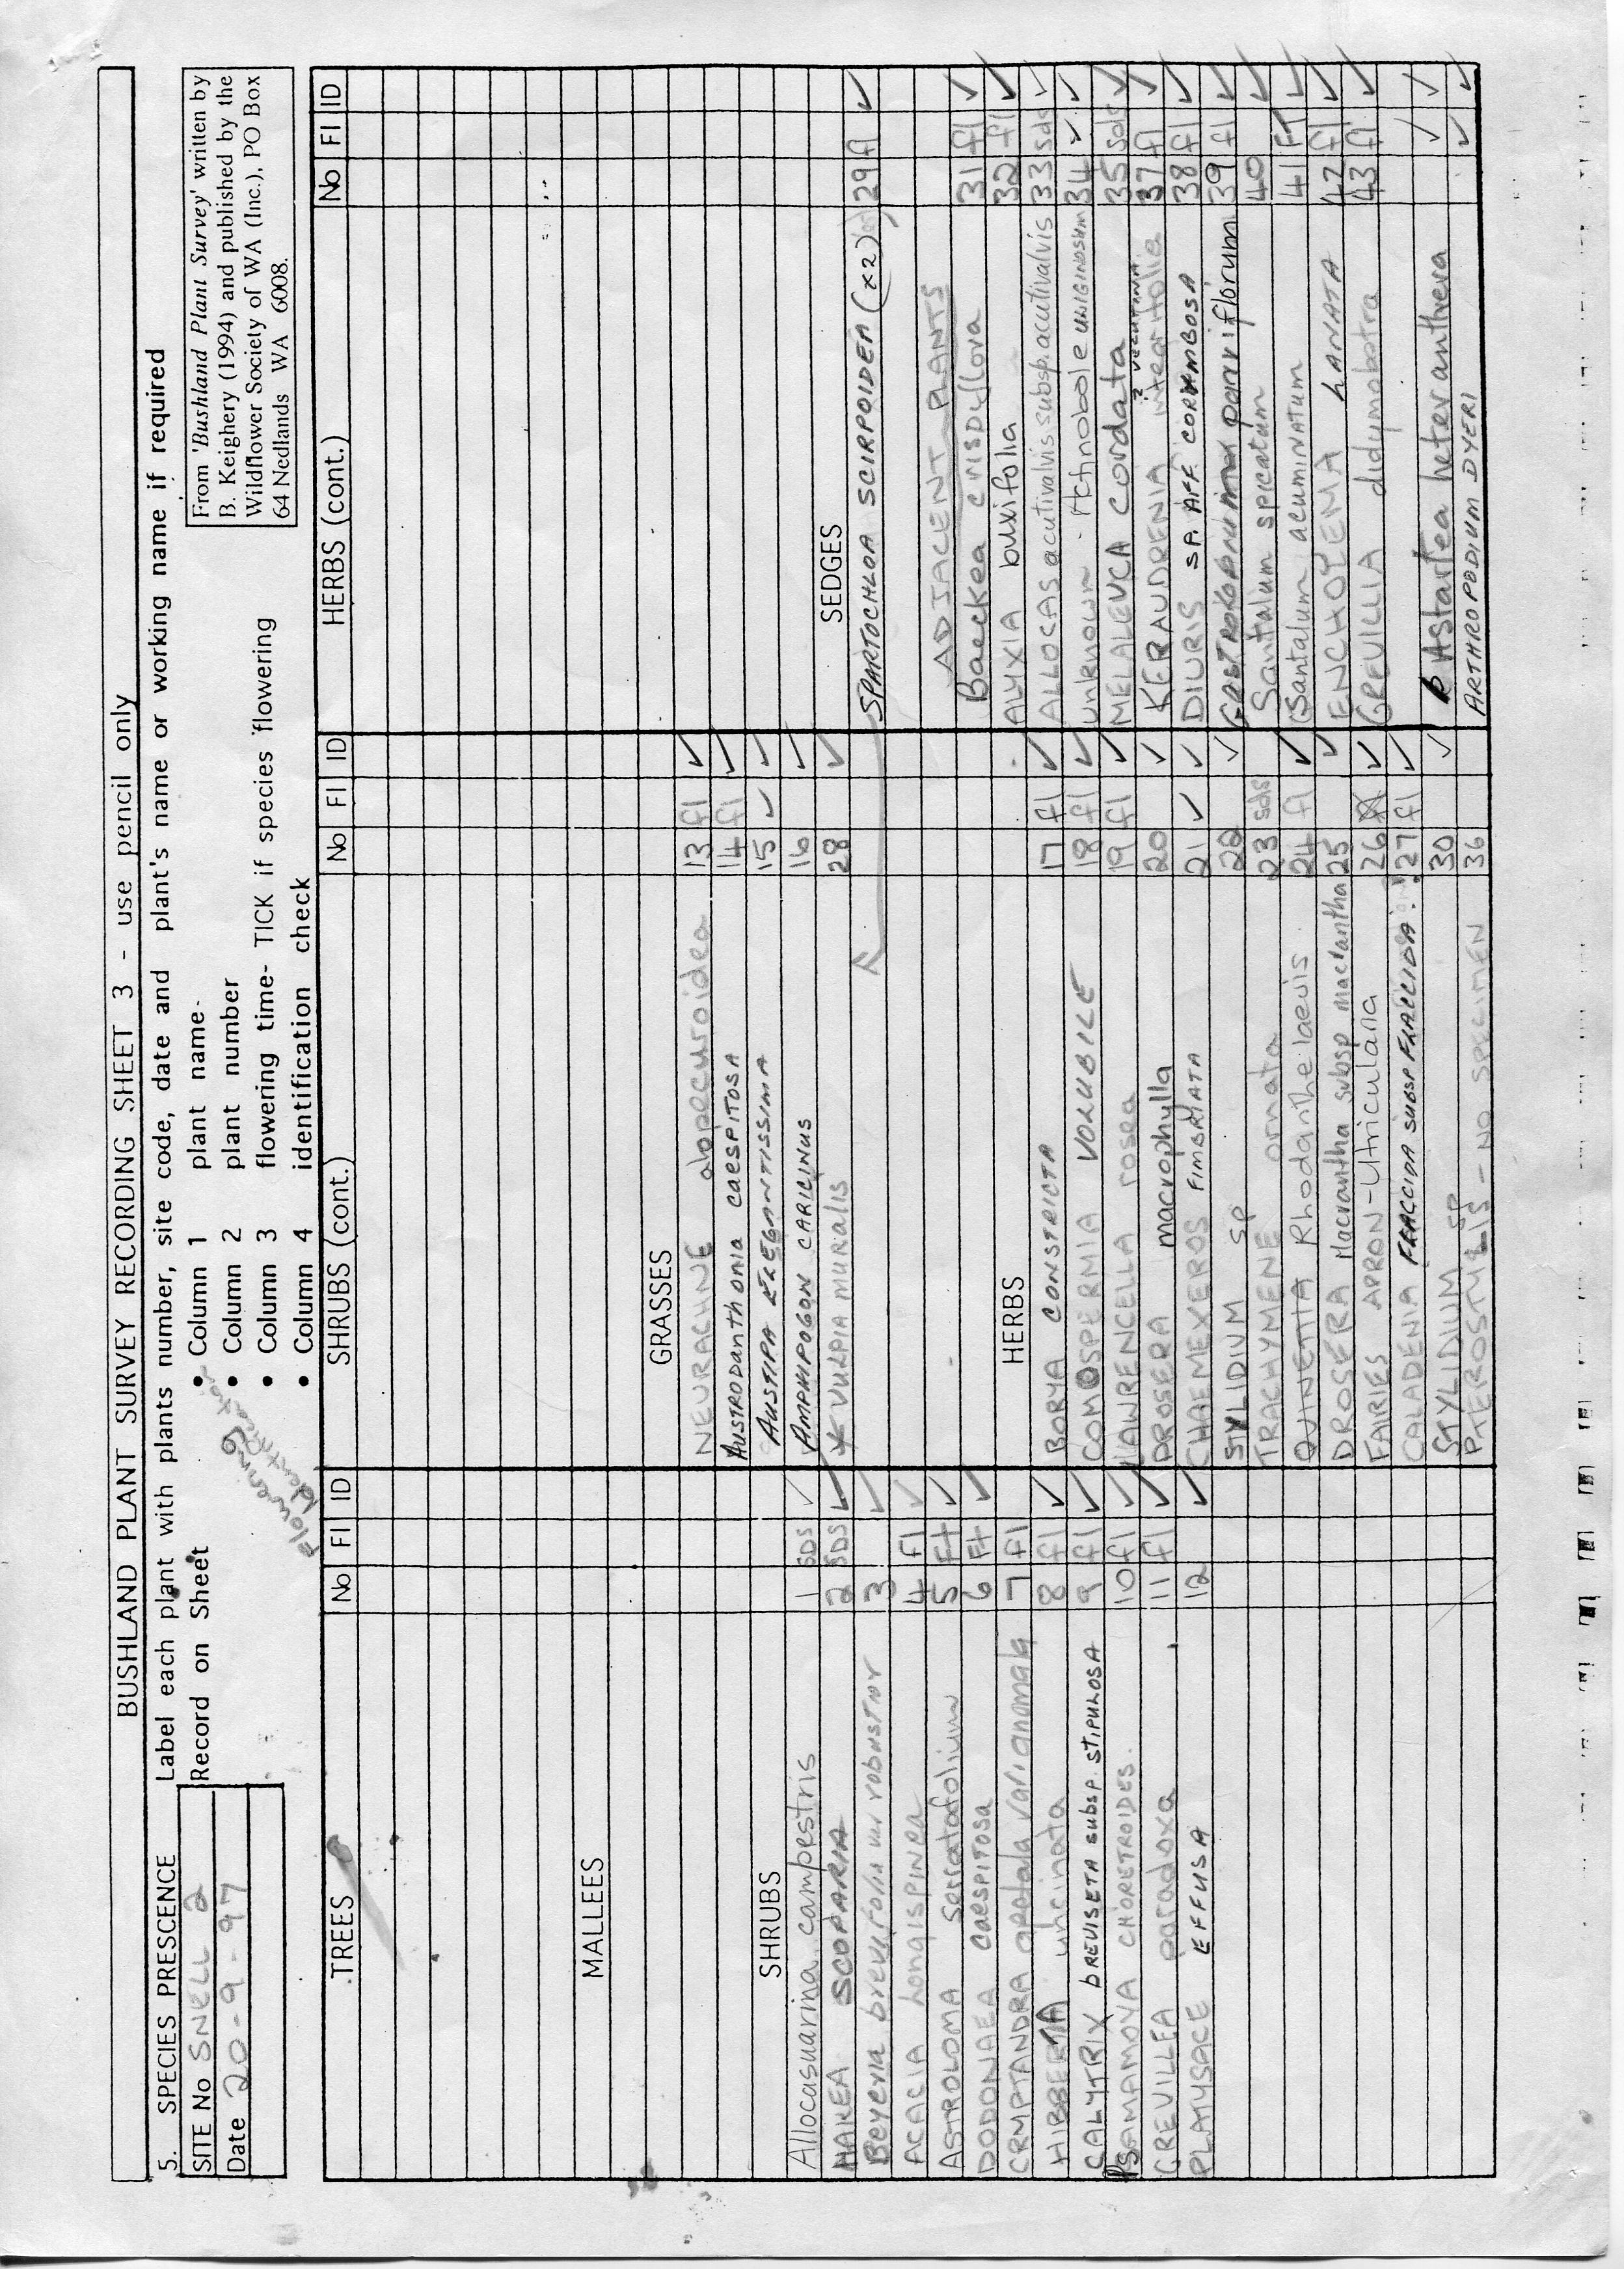 BUSHLAND PLANT SURVEY RECORDING SHEET 3 - use pencil only
5. SPECIES PRESCENCE
SITE No SNELL 2
Date 20-9-97
Label each plant with plants number, site code, date and plant's name or working name if required
Record on Sheet
• Column 1 plant name
• Column 2 plant number
• Column 3 flowering time- TICK if species flowering
• Column 4 identification check
Flowering
From 'Bushland Plant Survey' written by
B. Keighery (1994) and published by the
Wildflower Society of WA (Inc.), PO Box
64 Nedlands WA 6008.
TREES No Fl ID
MALLEES
SHRUBS
Allocasuarina campestris 1 SDS ✓
HAKEA SCOPARIA 2 SDS ✓
Beyeria brevifolia var robustior 3 ✓
ACACIA Longispinea 4 Fl ✓
ASTROLOMA serratofolium 5 Ft ✓
DODONAEA CAESPITOSA 6 Ft ✓
CRYPTANDRA apetala var anomala 7 Fl
HIBBERTIA uncinata 8 fl ✓
CALYTRIX BREVISETA subsp. STIPULOSA 9 fl ✓
PSAMAMOYA CHORETROIDES. 10 fl ✓
GREVILLEA paradoxa 11 fl ✓
PLATYSACE EFFUSA 12 ✓
SHRUBS (cont.) No Fl ID
GRASSES
NEURACHNE alopecuroidea 13 fl ✓
AUSTRODANTHONIA CAESPITOSA 14 fl ✓
AUSTIPA ELEGANTISSIMA 15 ✓ ✓
AMPHIPOGON CARICINUS 16 ✓
* VULPIA MURALIS 28 ✓
HERBS
BORYA CONSTRICTA 17 fl ✓
COMOSPERMIA VOLUBILE 18 fl ✓
LAWRENCELLA rosea 19 fl ✓
DROSERA macrophylla 20 ✓
CHAEMEXEROS FIMBRIATA 21 ✓ ✓
STYLIDIUM SP 22 ✓
TRACHYMENE ornata 23 sds
QUINETTIA Rhodanthe laevis 24 fl ✓
DROSERA Macrantha subsp macrantha 25 ✓
FAIRIES APRON - Utricularia 26 ✓
CALADENIA FLACCIDA SUBSP FLACCIDA 27 fl ✓
STYLIDIUM SP 30 ✓
PTEROSTYLIS - NO SPECIMEN 36
HERBS (cont.) No Fl ID
SEDGES
SPARTOCHLOA SCIRPOIDEA (x2) 29 fl ✓
ADJACENT PLANTS
Baeckea crispiflora 31 fl ✓
ALYXIA buxifolia 32 fl ✓
ALLOCAS acutivalvis subsp. acutivalvis 33 sds ✓
Unknown - Rhinobole UNIGINOSUM 34 ✓ ✓
MELALEUCA cordata 35 sds ✓
KERAUDRENIA integrifolia ? VELUTINA 37 fl ✓
DIURIS SP. AFF CORYMBOSA 38 fl ✓
GASTROLOBIUM parviflorum 39 fl ✓
Santalum spicatum 40 ✓
Santalum ACUMINATUM 41 Ft ✓
ENCHOLEMA LANATA 42 fl ✓
GREVILLIA didymobotra 43 fl ✓
Astartea heteranthera ✓ ✓
ARTHROPODIUM DYERI ✓ ✓